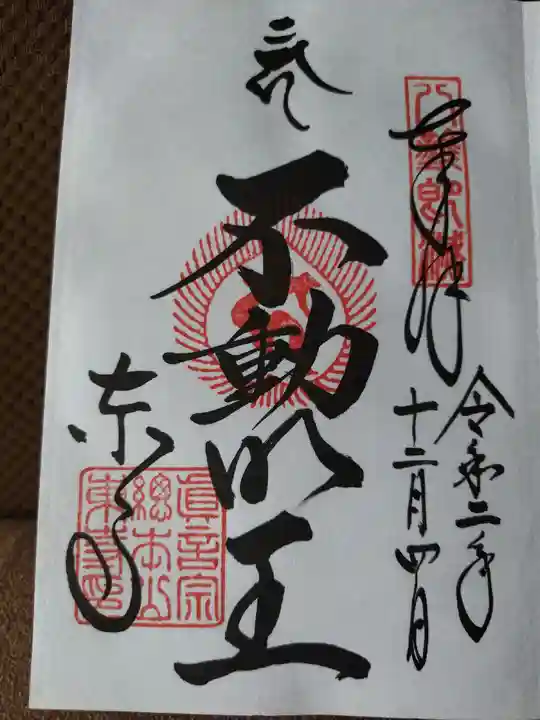 奉拝
八幻即滅
令和二年
十二月四日
不動明王
東寺
真言宗
総本山
東寺印